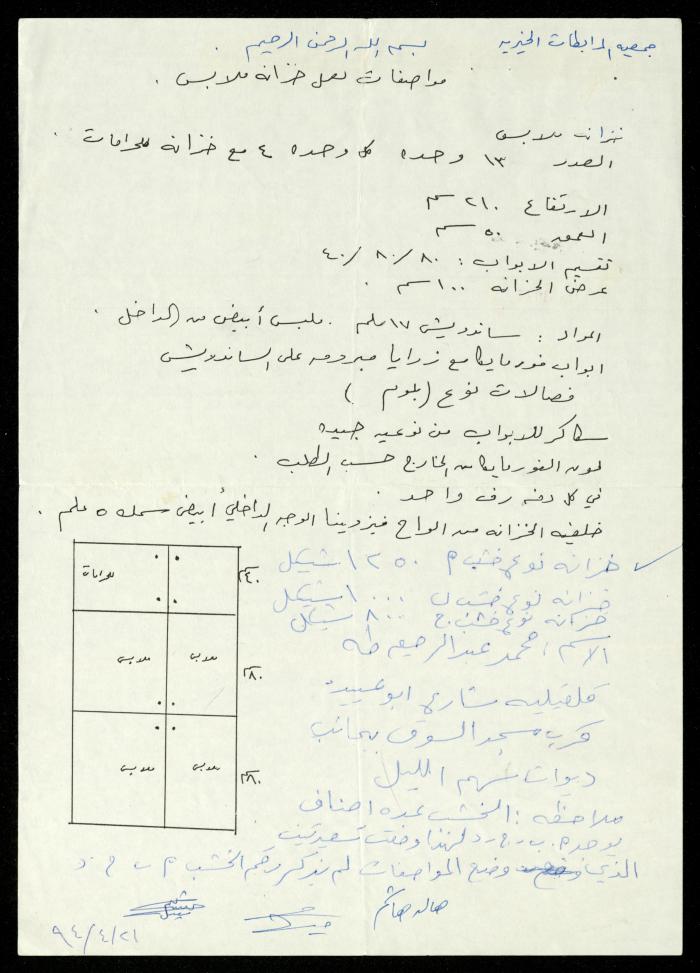 جمعيه المرابطات الخيريه
بسم الله الرحمن الرحيم
مواصفات لعمل خزانه ملابس .
خزانه ملابس
العدد ١٣ وحده كل وحده ٤ مع خزانه للحرامات
الارتفاع ٢١٠ سم
العمق ٥٠ سم
تقسيم الابواب : ٨٠/ ٨٠ /٤٠
عرض الخزانه ١٠٠ سم .
المواد : ساندويش ١٧ ملم . ملبس أبيض من الداخل .
ابواب فورمايكا مع زوايا مبرومه على الساندويش
فصالات نوع ( بلوم )
سكاكر للابواب من نوعيه جيده
لون الفورمايكا من الخارج حسب الطلب .
في كل دفه رف واحد .
خلفيه الخزانه من الواح فيزونيت الوجه الداخلي أبيض سمك ٥ ملم .
للحرامات
٤٠سم
ملابس ملابس
٨٠سم
ملابس ملابس
٨٠سم
خزانه نوع خشب م ١٢٥٠ شيكل
خزانه نوع خشب ب ١٠٠٠ شيكل
خزانه نوع خشب ج ٨٠٠ شيكل
الاسم : محمد عبد الرحيم طه
قلقيليه شارع ابو عبيده
قرب مسجد السوق بجانب
ديوان سهم الليل
ملاحظه : الخشب عده اصناف
يوجد م. ب. ج. د لهذا وضعت تسعرتين
الذي وضع المواصفات لم يذكر رقم الخشب م ب ج د
خالد هاشم
٩٤/٤/٢١